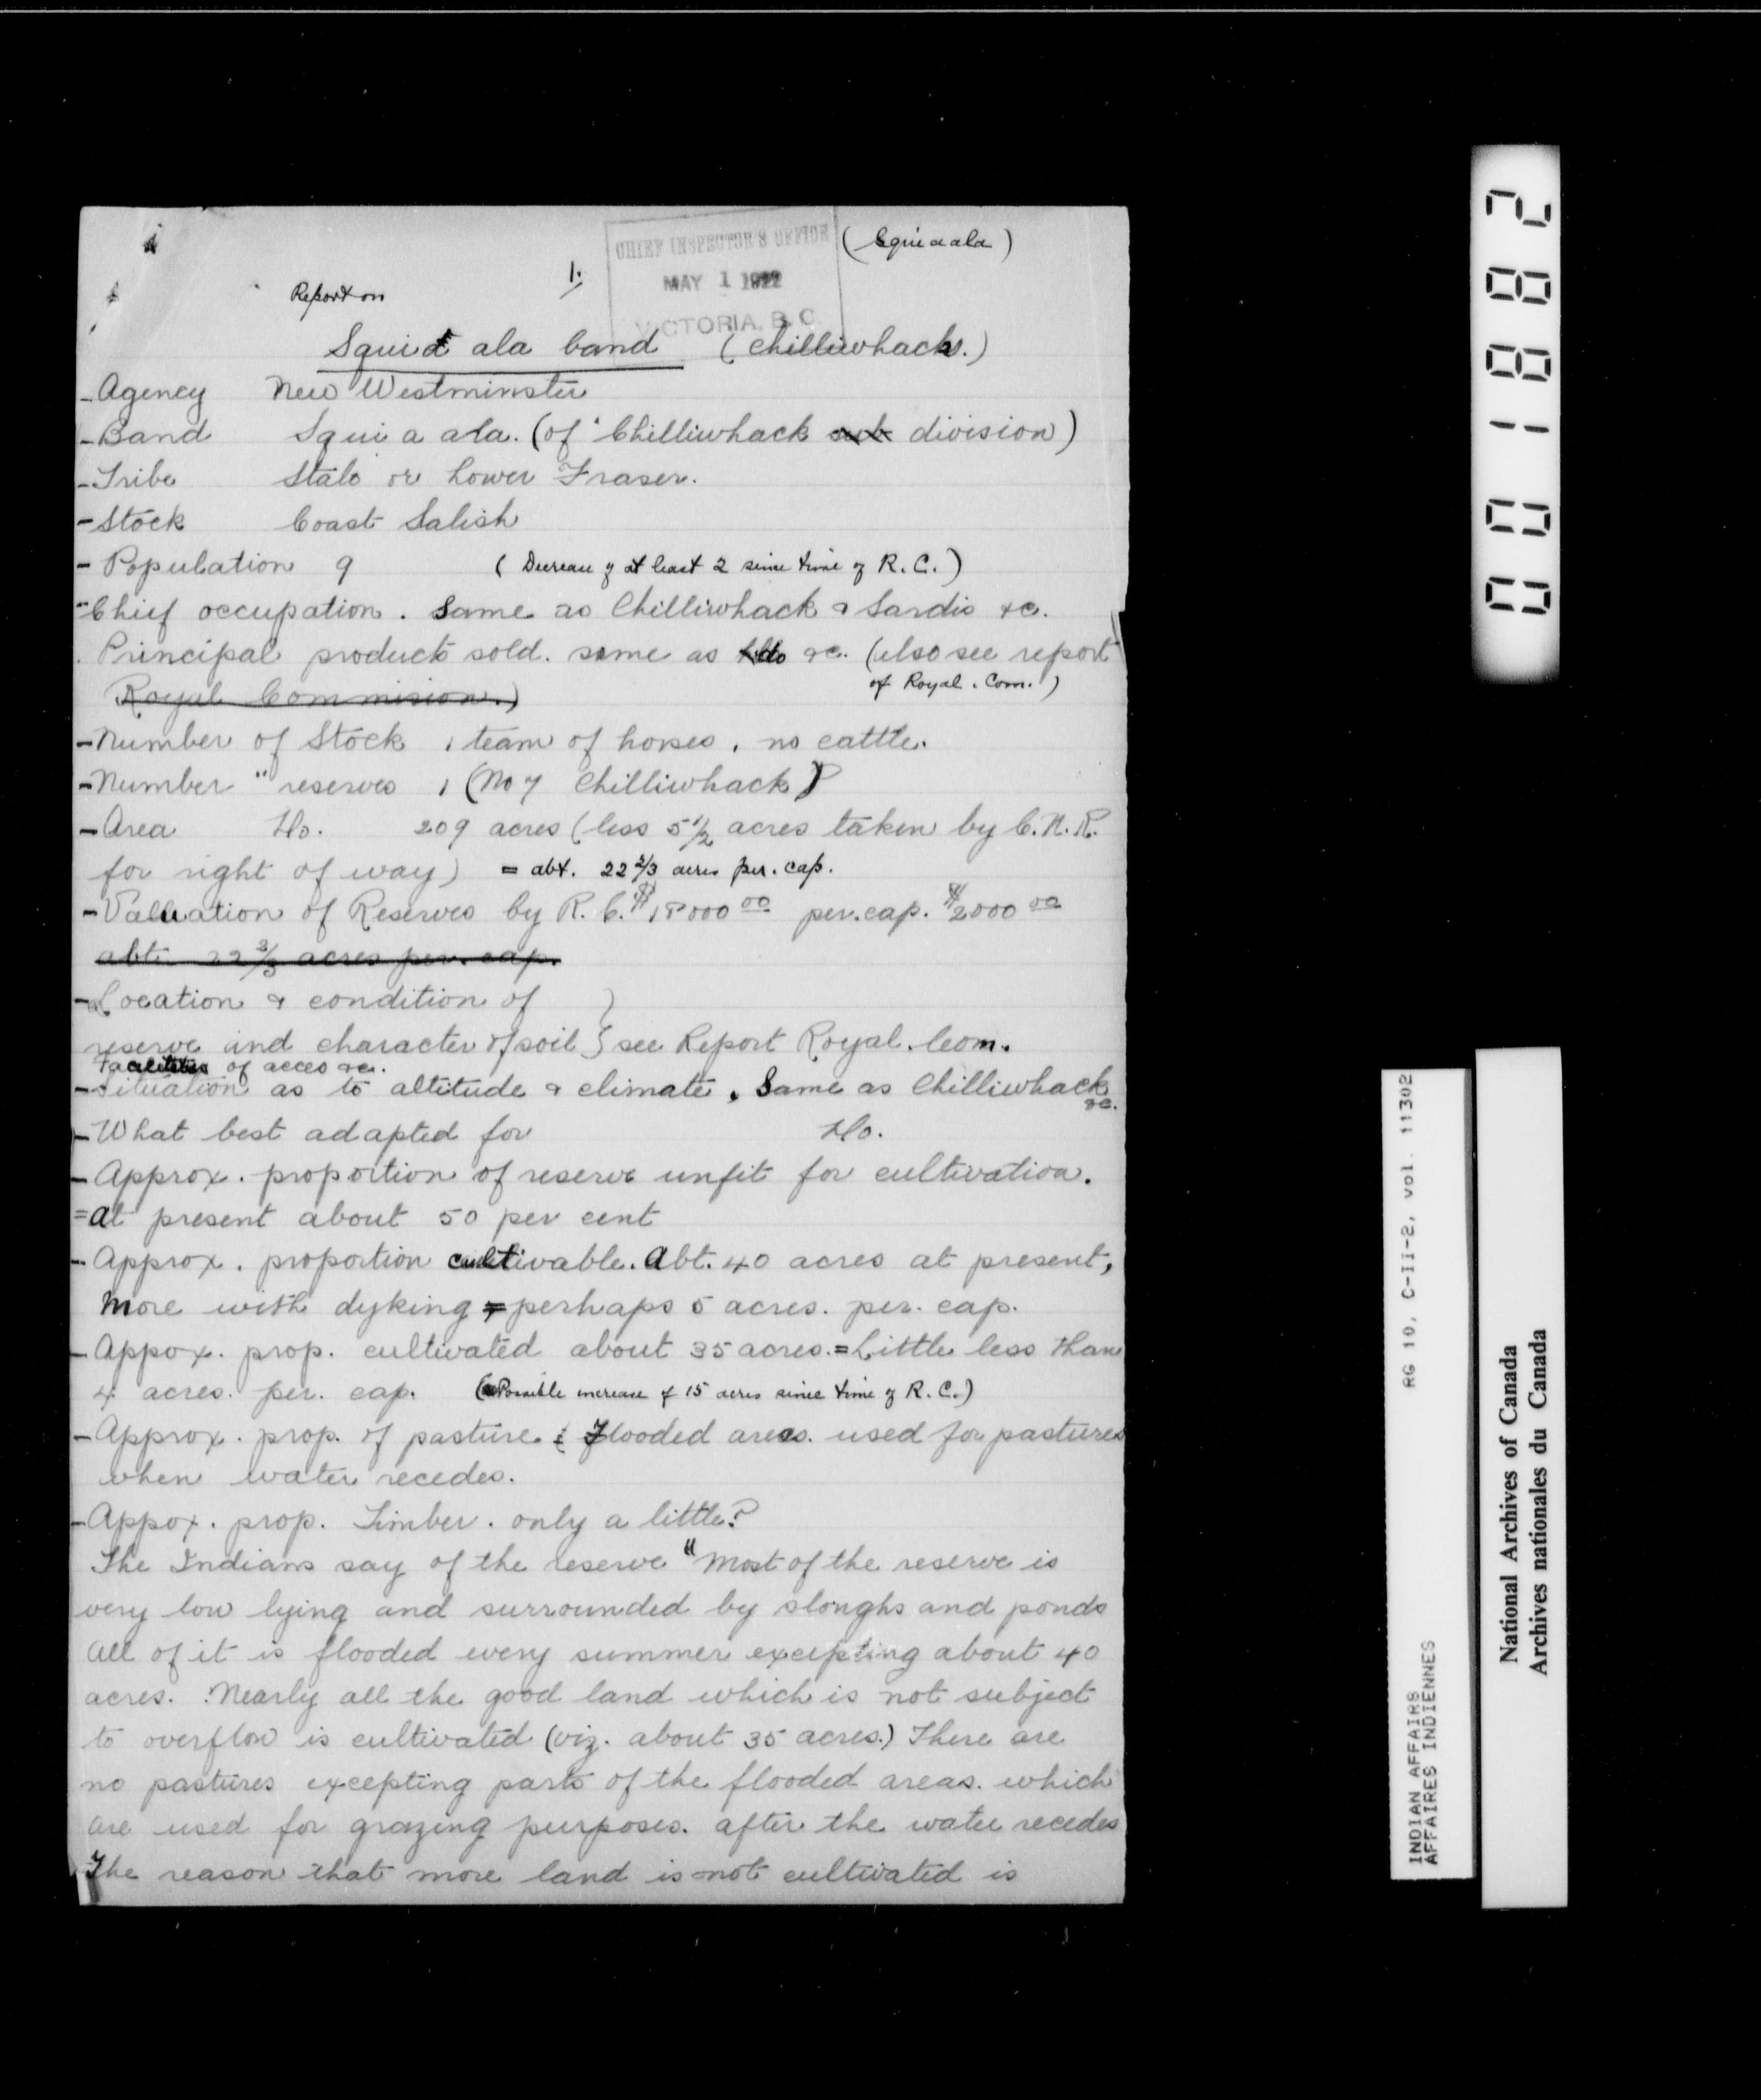 CHIEF INSPECTOR'S OFFICE
MAY 1 1922
VICTORIA, B.C.
(Squiaala)
1.
Report on
Squia ala band (Chilliwhack.)
- Agency New Westminster
- Band Squi a ala. (of Chilliwhack sub division)
- Tribe Stalo or Lower Fraser.
- Stock Coast Salish
- Population 9 (Decrease of at least 2 since time of R.C.)
- Chief occupation. Same as Chilliwhack & Sardis &c.
Principal products sold. same as do &c. (also see report
of Royal. Com.)
Royal Commision.)
- Number of Stock 1 team of horses, no cattle.
- Number " reserves 1 (No 7 Chilliwhack)
- Area Do. 209 acres (less 5 1/2 acres taken by C.N.R.
for right of way) = abt. 22 2/3 acres per. cap.
- Valuation of Reserves by R.C. $18000 00 per. cap. $2000 00
abt. 22 2/3 acres per. cap.
- Location & condition of }
reserve and character of soil } see Report Royal. Com.
Facilities of acces &c.
- Situation as to altitude & climate. Same as Chilliwhack
&c.
- What best adapted for Do.
- Approx. proportion of reserve unfit for cultivation.
= at present about 50 per cent
- Approx. proportion cultivable. Abt. 40 acres at present,
More with dyking = perhaps 5 acres. per. cap.
- Appox. prop. cultivated about 35 acres. = Little less than
4 acres. per. cap. (Possible increase of 15 acres since time of R.C.)
- Approx. prop. of pasture : Flooded areas. used for pastures
when water recedes.
- Appox. prop. Timber. only a little?
The Indians say of the reserve "Most of the reserve is
very low lying and surrounded by sloughs and ponds
All of it is flooded every summer excepting about 40
acres. Nearly all the good land which is not subject
to overflow is cultivated (viz. about 35 acres.) There are
no pastures excepting parts of the flooded areas. which
are used for grazing purposes. after the water recedes
The reason that more land is not cultivated is
001882
RG 10, C-II-2, vol. 11302
INDIAN AFFAIRS
AFFAIRES INDIENNES
National Archives of Canada
Archives nationales du Canada